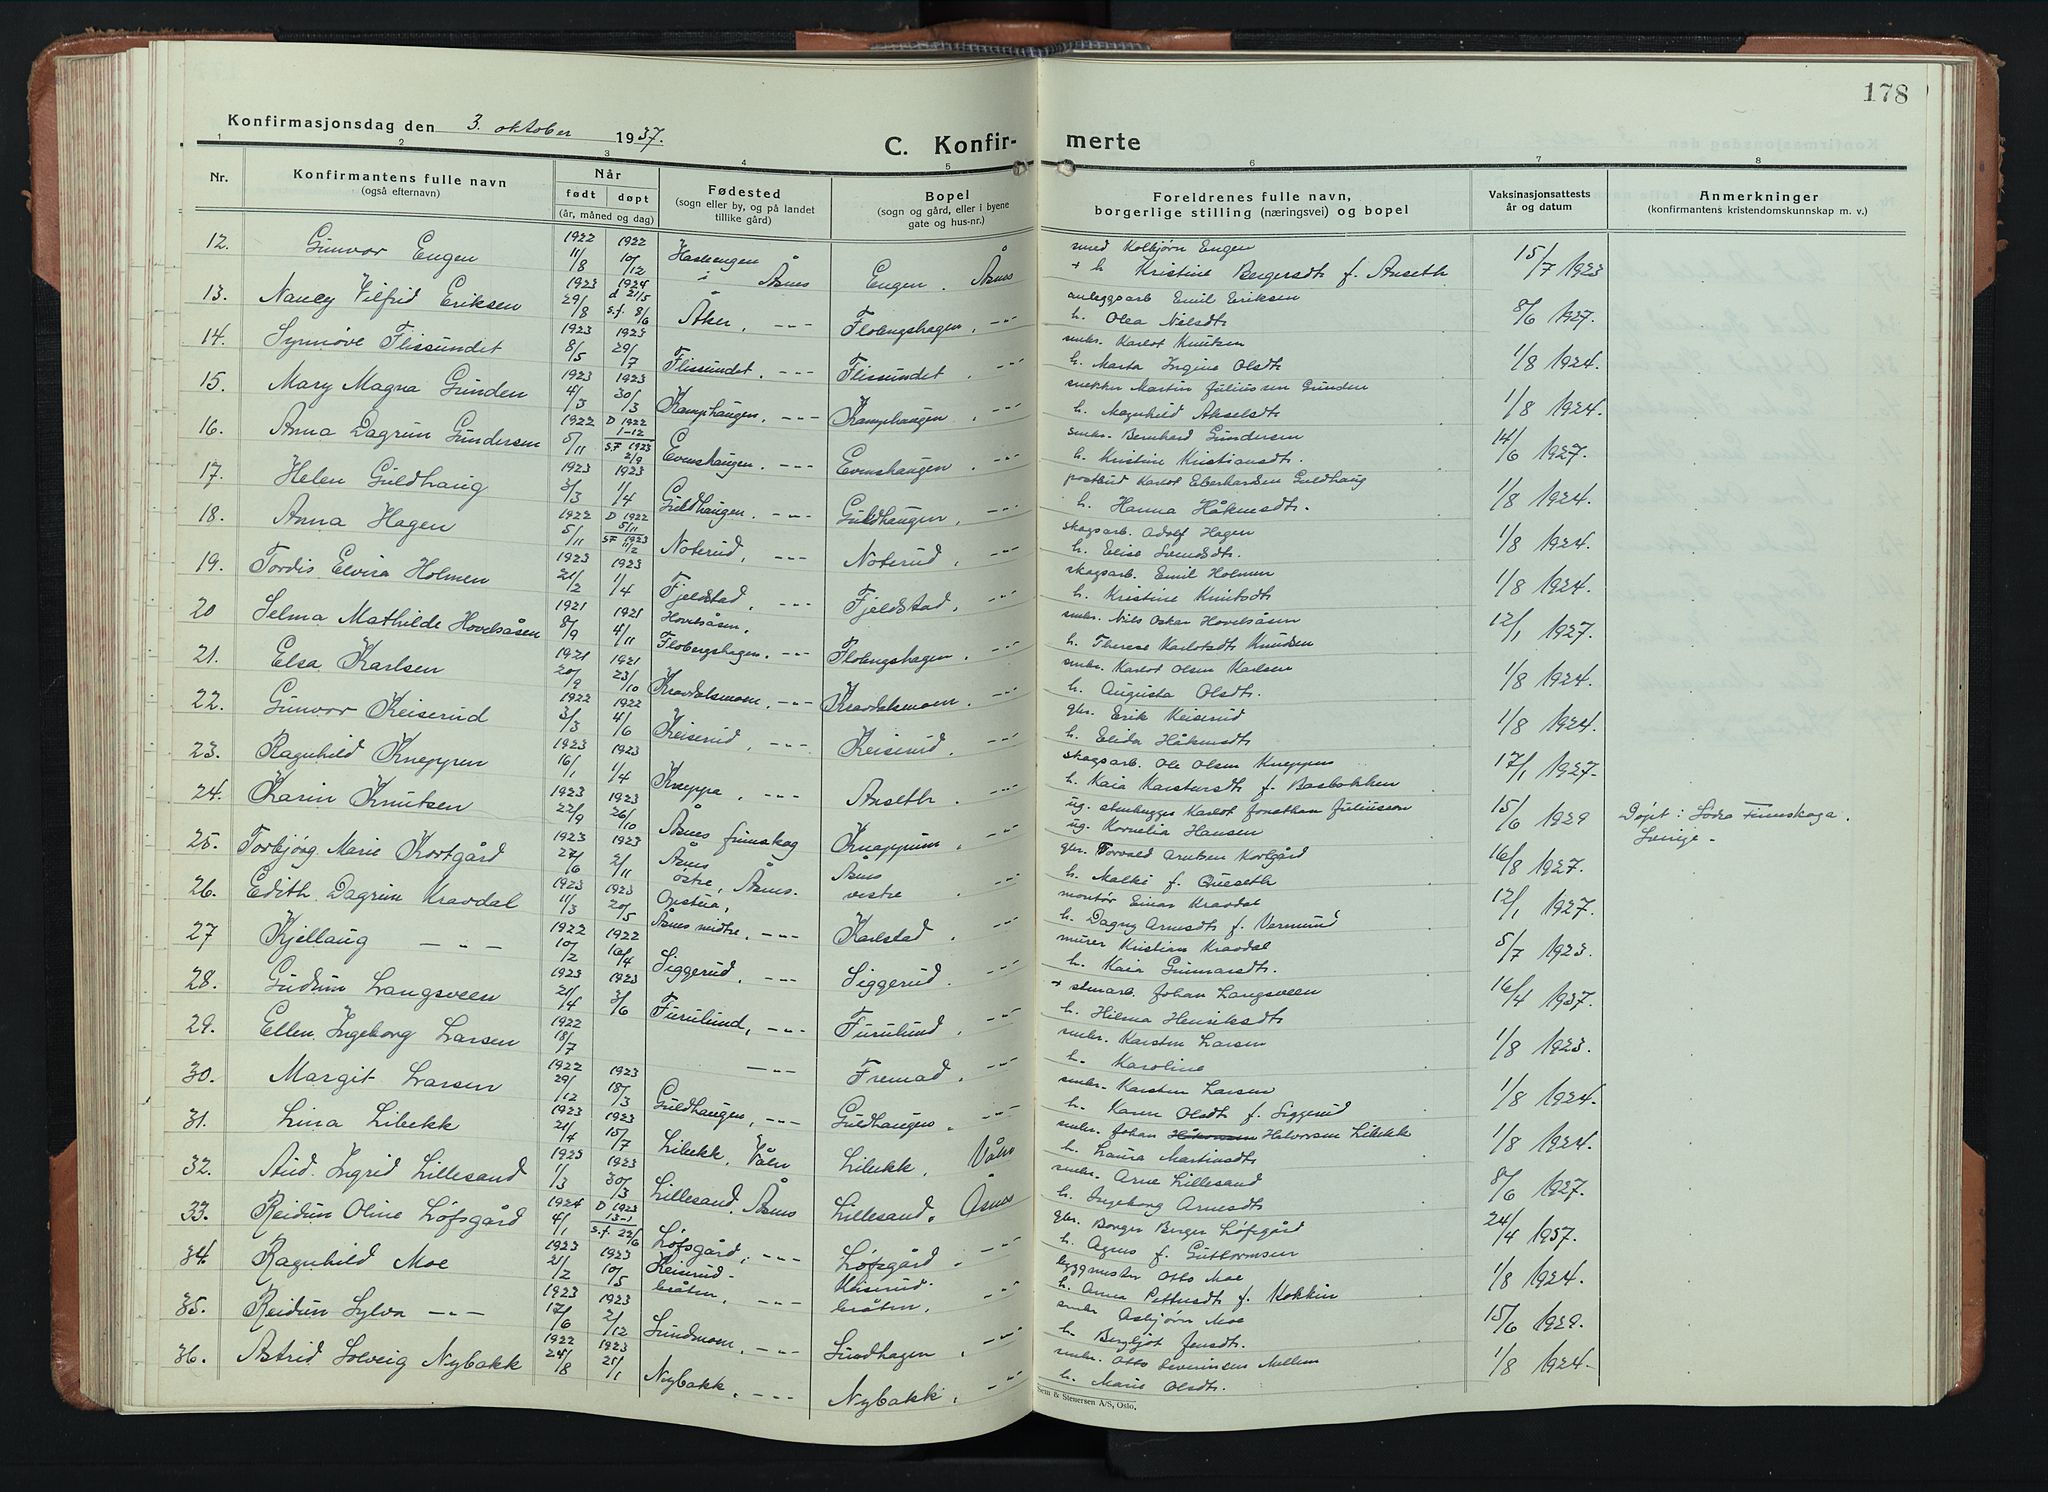 178
Konfirmasjonsdag den 3. oktober 1937.
C. Konfir- merte
1 2 3 4 5 6 7 8
Nr. Konfirmantens fulle navn (også efternavn) Når født døpt (år, måned og dag) Fødested (sogn eller by, og på landet tillike gård) Bopel (sogn og gård, eller i byene gate og hus-nr.) Foreldrenes fulle navn, borgerlige stilling (næringsvei) og bopel Vaksinasjonsattests år og datum Anmerkninger (konfirmantens kristendomskunnskap m. v.)
12. Gunvor Engen 1922 11/8 1922 10/12 Hasbengen i Åsnes Engen. Åsnes smed Kolbjørn Engen + h. Kristine Bergersdt f. Anseth 15/7 1923
13. Nancy Vilfrid Eriksen 1923 29/8 1924 d 21/5 s.f. 8/6 Åker, -"- Flobergshagen, -"- anleggsarb Emil Eriksen h. Olea Nilsdt. 8/6 1927.
14. Synnøve Flissundet 1923 8/5 1923 29/7 Flissundet. -"- Flissundet. -"- smbr. Karlot Knutsen h. Marta Ingine Olsdt. 1/8 1924.
15. Mary Magna Grunden 1923 4/3 1923 30/3 Kamphaugen, -"- Kamphaugen. -"- snekker Martin Juliussen Grunden h. Magnhild Akselsdt. 1/8 1924.
16. Anna Dagrun Gundersen 1922 5/11 D 1922 1-12 SF 1923 2/9 Evenshaugen. -"- Evenshaugen. -"- smbr. Bernhard Gundersen h. Kristine Kristiansdt. 14/6 1927.
17. Helen Guldhaug 1923 3/3 1923 1/4 Guldhaugen. -"- Guldhaugen, -"- postbud Karlot Eberhardsen Guldhaug h. Hanna Håkensdt. 1/8 1924.
18. Anna Hagen 1922 5/11 D 1922 5/11 SF 1923 11/2 Noterud, -"- Noterud, -"- skogsarb. Adolf Hagen h. Elise Svendsdt. 1/8 1924.
19. Tordis Elvira Holmen 1923 21/2 1923 1/4 Fjeldstad, -"- Fjeldstad, -"- skogsarb. Emil Holmen h. Kristine Knutsdt. 1/8 1924.
20 Selma Mathilde Hovelsåsen 1921 8/9 1921 4/11 Hovelsåsen, Flobergshagen. -"- Flobergshagen. -"- smbr. Nils Oskar Hovelsåsen h. Therese Karlotsdt. Knudsen 12/1 1927.
21. Elsa Karlsen 1921 20/9 1921 23/10 Kravdalsmoen, -"- Kravdalsmoen. -"- smbr. Karlot Olsen Karlsen h. Augusta Olsdt. 1/8 1924.
22. Gunvor Keiserud 1922 3/3 1922 4/6 Keiserud, -"- Keiserud. -"- gbr. Erik Keiserud h. Elida Håkensdt. 1/8 1924.
23. Ragnhild Kneppen 1923 16/1 1923 1/4 Kneppa, -"- Anseth. -"- skogsarb. Ole Olsen Kneppen h. Kaia Karstensdt f. Basbakken 17/1 1927.
24. Karin Knutsen 1923 22/9 1923 26/10 Åsnes finnskog Knappum. -"- ug. stenhugger Karlot Jonathan Juliussen ug. Kornelia Hansen 15/6 1929 Døpt: Södra Finnskoga. Sverige.
25. Torbjørg Marie Kortgård 1923 27/6 1923 2/11 Åsnes østre, Åsnes. Åsnes vestre -"- gbr. Torvald Arntsen Kortgård h. Malki f. Queseth 16/8 1927.
26. Edith Dagrun Kravdal 1923 11/3 1923 20/5 Opsteia, Åsnes midtre, -"- Karlstad. -"- montør Einar Kravdal h. Dagny Arnesdt. f. Vermund 12/1 1927.
27 Kjellaug -"- 1922 10/2 1922 16/4 Siggerud, -"- Siggerud. -"- murer Kristian Kravdal h. Kaia Gunnarsdt. 5/7 1923.
28. Gudrun Langsveen 1923 21/4 1923 3/6 Furulund, -"- Furulund. -"- + stenarb. Johan Langsveen h. Hilma Henriksdt. 16/4 1937.
29. Ellen Ingeborg Larsen 1922 18/7 -"- Fremad. -"- smbr. Karsten Larsen h. Karoline 1/8 1923.
30. Margit Larsen 1922 29/12 1923 18/3 Guldhaugen, -"- Guldhaugen. -"- smbr. Karsten Larsen h. Karen Olsdt. f. Siggerud 1/8 1924.
31. Lina Libekk 1923 21/4 1923 15/7 Libekk, Våler Libekk, Våler smbr. Johan Håkonsen Halvorsen Libekk h. Laura Martinsdt. 1/8 1924.
32. Aud Ingrid Lillesand 1923 1/3 1923 30/3 Lillesand. Åsnes Lillesand. Åsnes smbr. Arne Lillesand h. Ingeborg Arnesdt. 8/6 1927.
33. Reidun Oline Løfsgård 1924 4/1 D 1923 13-1 s.f. 22/6 Løfsgård, -"- Løfsgård -"- gbr. Borger Berger Løfsgård h. Agnes f. Guttormsen 24/4 1937.
34. Ragnhild Moe 1923 21/2 1923 10/5 Keiserud-bråten, -"- Keiserud-bråten, -"- byggmester Otto Moe h. Anna Pettersdt. f. Kokkin 1/8 1924.
35. Reidun Sylva -"- 1923 17/6 1923 2/12 Sundmoen, -"- Sundhagen, -"- smbr. Asbjørn Moe h. Bergljot Jensdt. 15/6 1929.
36. Astrid Solveig Nybakk 1922 24/8 1923 21/1 Nybakk, -"- Nybakk, -"- smbr. Otto Severinsen Mellem h. Marie Olsdt. 1/8 1924.
Sem & Stenersen A/S, Oslo.